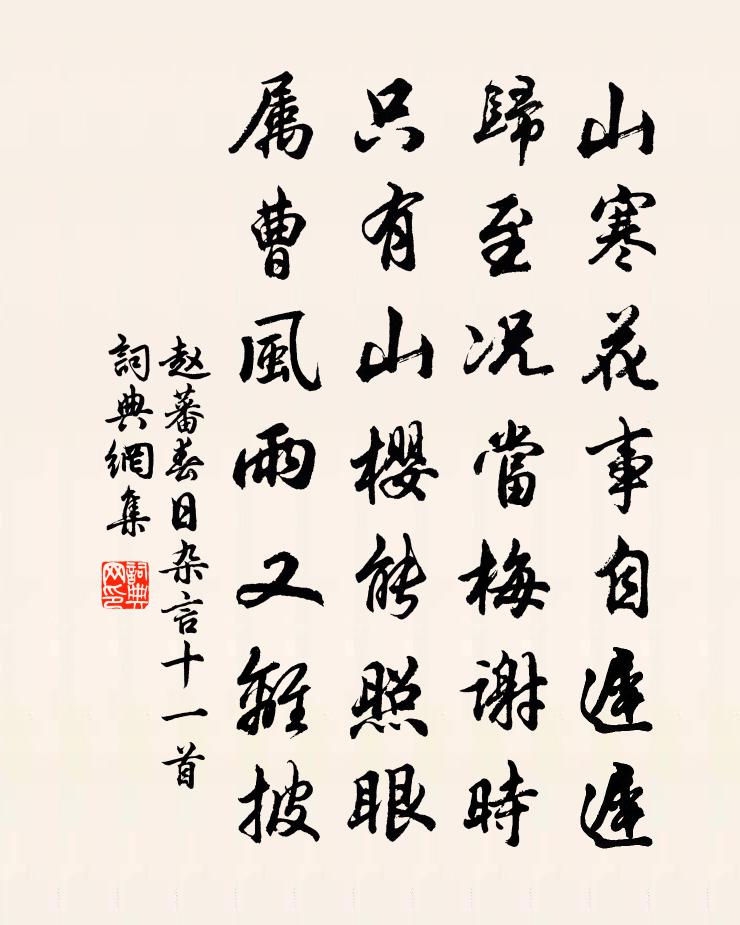 山寒花事自遲遲
歸至况當梅謝時
只有山櫻能照眼
属曹風雨又離披
赵蕃春日杂言十一首
詞典網集
詞典网印